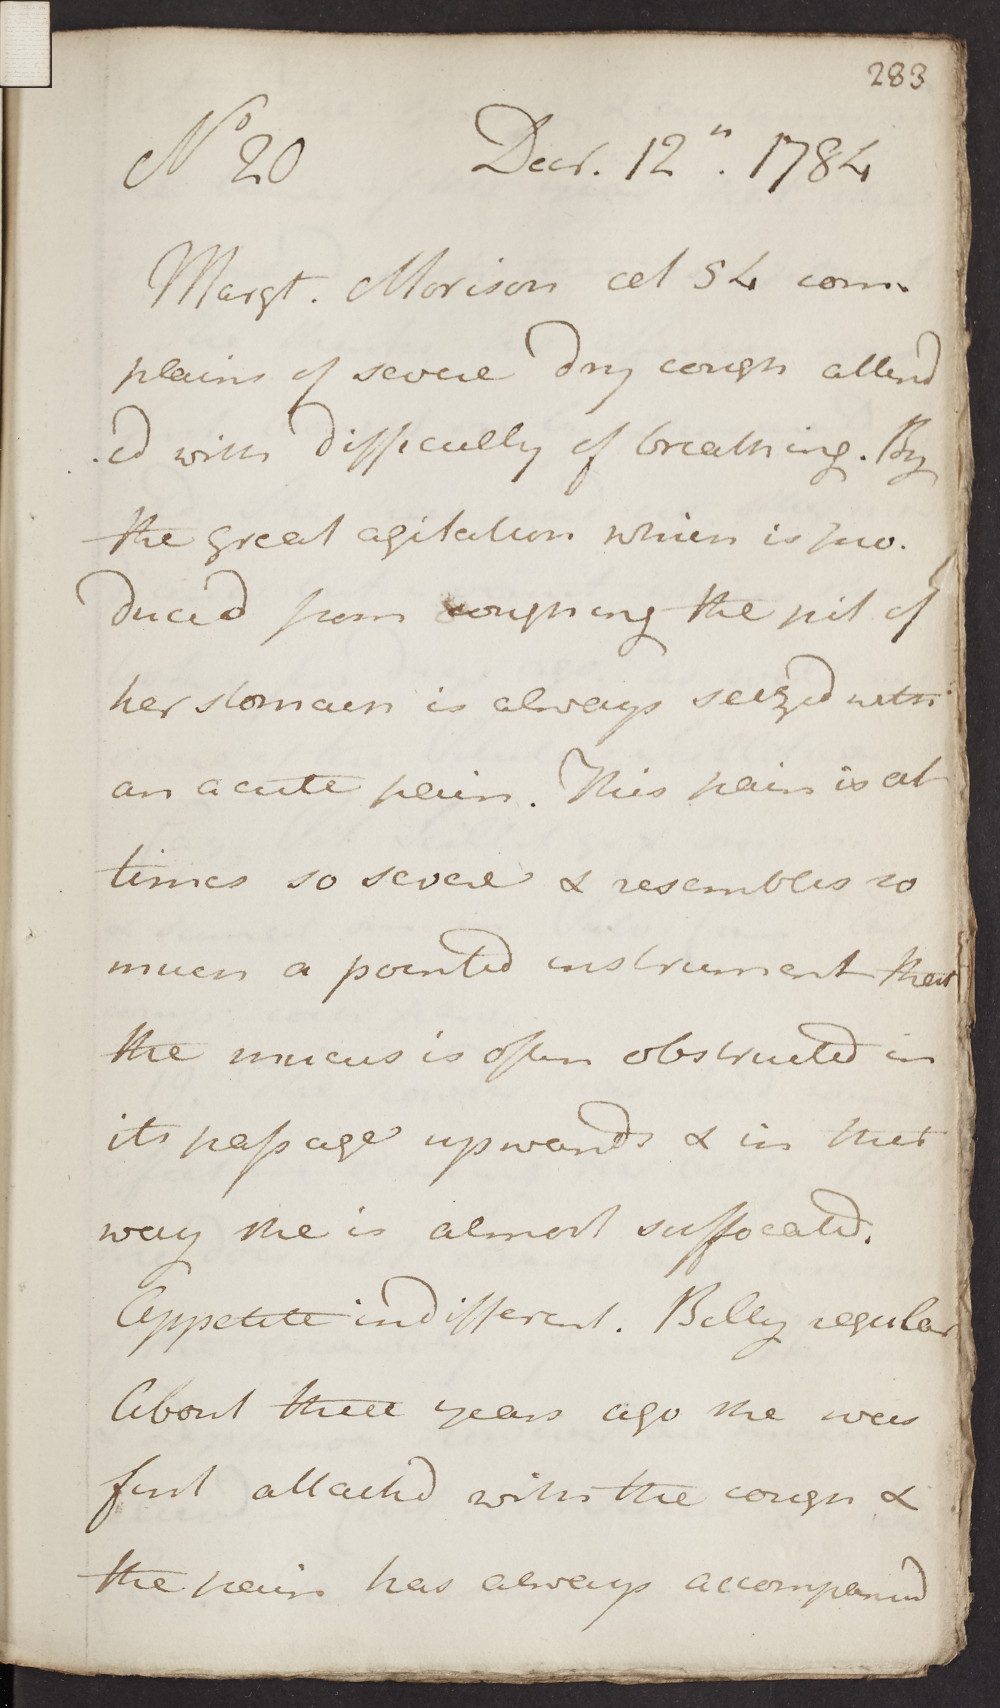 283
No 20 Decr. 12th. 1784
Margt. Morison aet 54 com-
plains of severe dry cough attend
-ed with difficulty of breathing. By
the great agitation which is pro-
duced from coughing the pit of
her stomach is always seized with
an acute pain. This pain is at
times so severe & resembles so
much a pointed instrument that
the mucus is often obstructed in
its passage upwards & in that
way she is almost suffocated.
Appetite indifferent. Belly regular
About three years ago she was
first attacked with the cough &
the pain has always accompanied